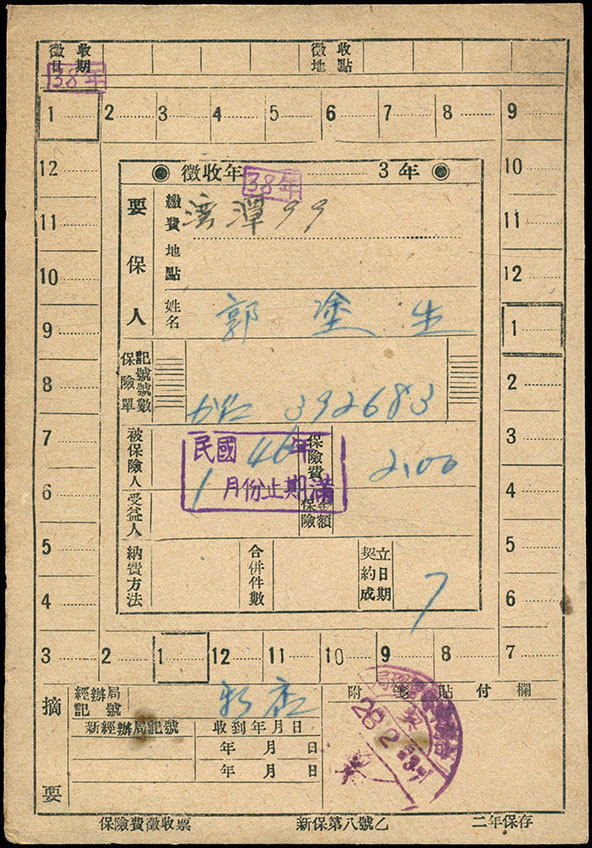 徵收日期
徵收地點
38年
1 2 3 4 5 6 7 8 9
12 10
徵收年 38年 3年
11 11
10 12
9 1
8 2
7 3
6 4
5 5
4 6
3 2 1 12 11 10 9 8 7
要保人
繳費地點 潭99
姓名 郭塗生
保險單記號號數 392683
被保險人
保險費 2.00
民國46年
1月份止期滿
受益人
保險金額
納費方法
合併件數
契約成立日期 7
摘要
經辦局記號
附箋貼付欄
新經辦局記號 收到年月日
年 月 日
年 月 日
28.2
保險費徵收票 新保第八號乙 二年保存